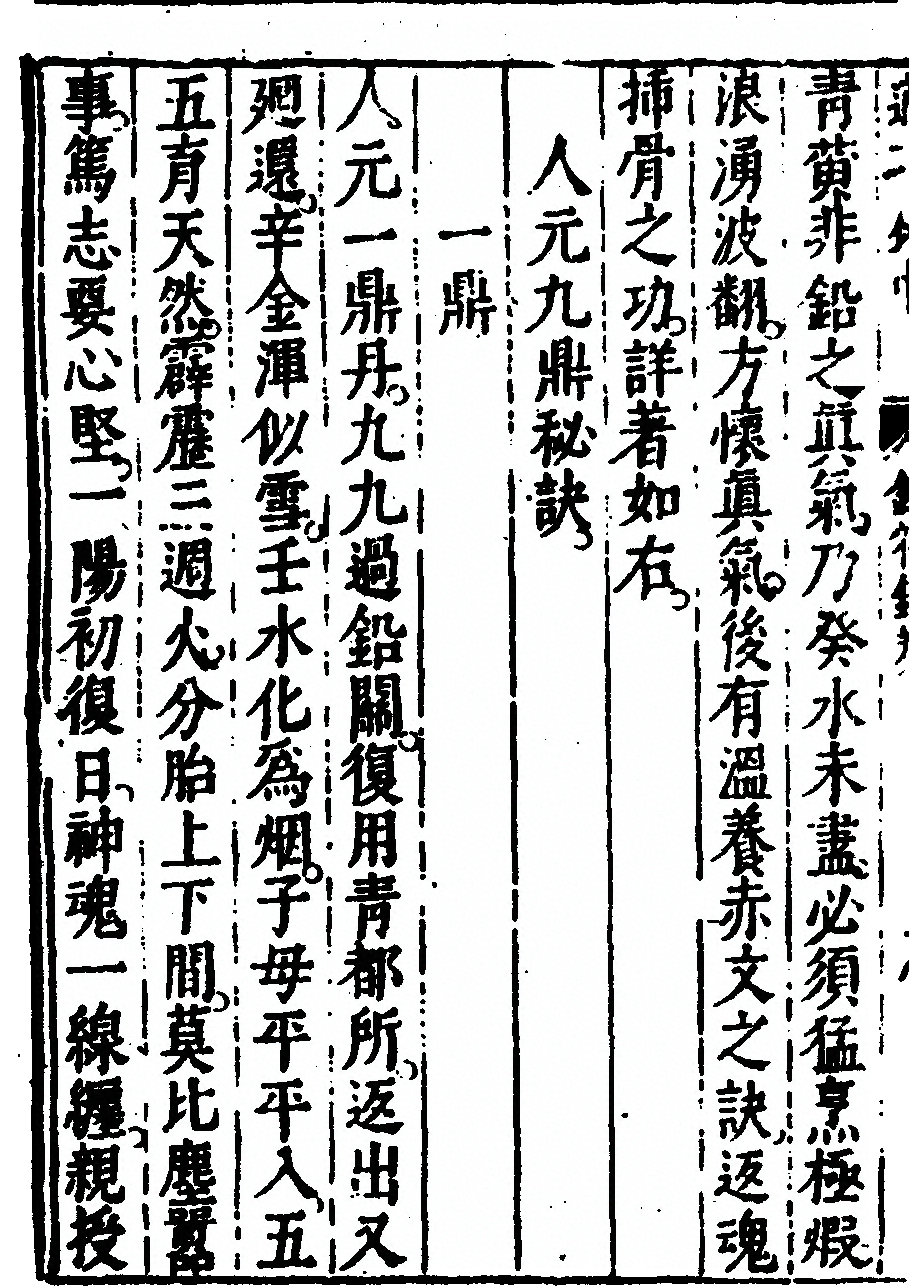 青黃非鉛之眞氣乃癸水未盡必須猛烹極煆
浪湧波翻方懷眞氣後有溫養赤文之訣返魂
揷骨之功詳著如右
人元九鼎秘訣
一鼎
人元一鼎丹九九過鉛關復用青都所返出又
廻還辛金渾似雪壬水化爲烟子母平平入五
五育天然霹靂三週火分胎上下間莫比塵囂
事篤志要心堅一陽初復日神魂一線纏親授